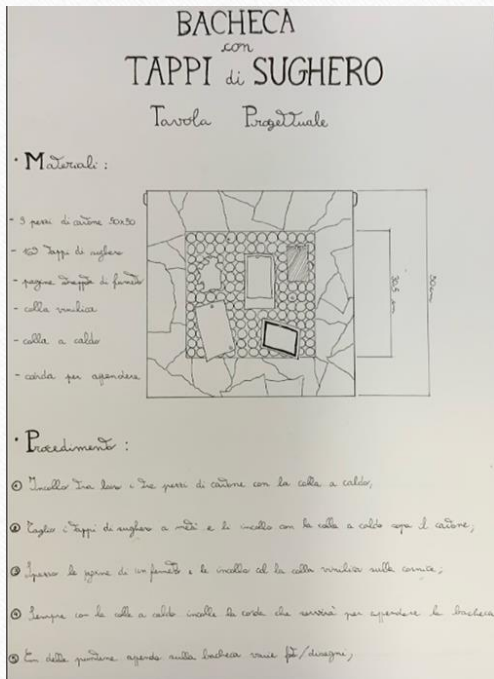 BACHECA
con
TAPPI di SUGHERO
Tavola Progettuale
• Materiali :
- 3 pezzi di cartone 50x50
- tappi di sughero
- pagine di fumetto
- colla vinilica
- colla a caldo
- corda per appendere
30,5 cm
50 cm
• Procedimento :
① Incollo tra loro i tre pezzi di cartone con la colla a caldo;
② Taglio i tappi di sughero a metà e li incollo con la colla a caldo sopra il cartone;
③ le pagine di un fumetto e le incollo la colla vinilica sulla cornice;
④ Sempre con la colla a caldo incollo la corda che servirà per appendere la bacheca
⑤ delle puntine appendo sulla bacheca varie foto/disegni;